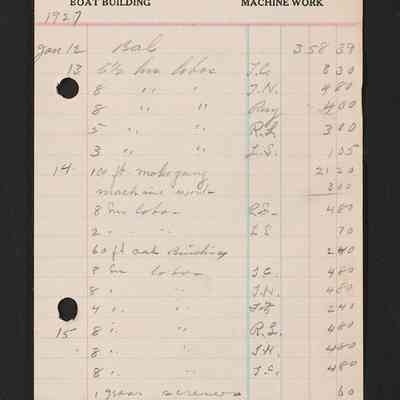 BOAT BUILDING MACHINE WORK
1927
Jan 12 Bal 358 39
13 6½ hrs labor J.C. 830
8 " " J.N. 480
8 " " Ray 400
5 " " R.L. 300
3 " " L.S. 105
14 100 ft mahogany 2120
machine work 300
8 hrs labor 480
2 " " L.S. 70
60 ft oak 240
8 hrs labor J.C. 480
8 " " J.N. 480
4 " " 240
15 8 " " R.L. 480
8 " " J.N. 480
8 " " J.C. 480
1 gross screws 60